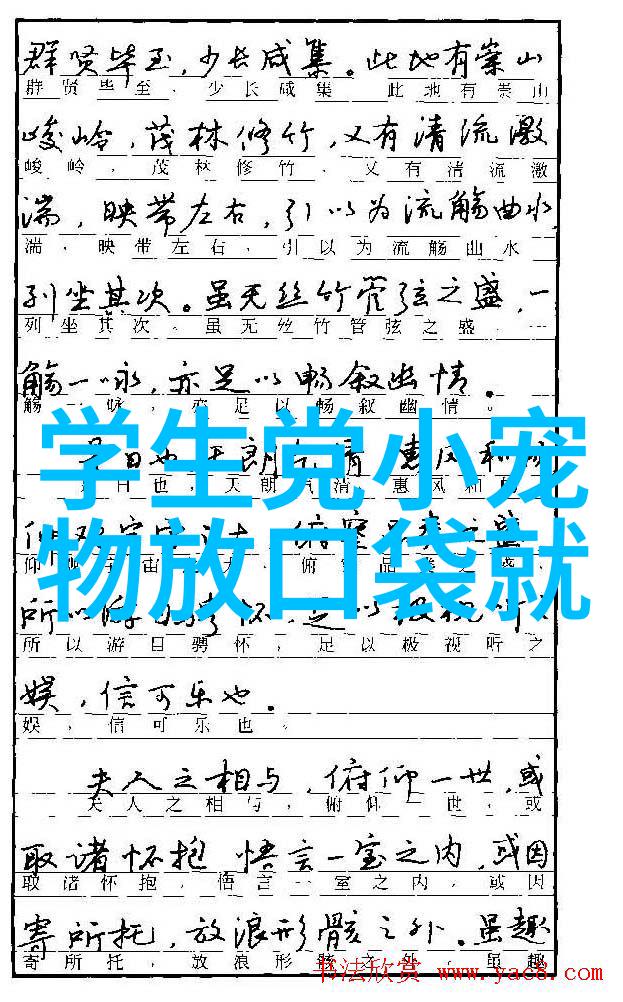 群贤毕至，少长咸集。此地有崇山
群贤毕至，少长咸集。此地有崇山
峻岭，茂林修竹，又有清流激
峻岭，茂林修竹，又有清流激
湍，映带左右，引以为流觞曲水，
湍，映带左右，引以为流觞曲水
列坐其次。虽无丝竹管弦之盛，一
列坐其次。虽无丝竹管弦之盛，一
觞一咏，亦足以畅叙幽情。
觞一咏，亦足以畅叙幽情。
是日也，天朗气清，惠风和
是日也，天朗气清，惠风和
学生党小宠
物放口袋就
仰
所以游目骋怀，足以极视听
所以游目骋怀，足以极视听之
娱，信可乐也。
娱，信可乐也。
夫人之相与，俯仰一世，或
夫人之相与，俯仰一世，或
取诸怀抱，悟言一室之内，或因
取诸怀抱，悟言一室之内，或因
寄所托，放浪形骸之外。虽趣
寄所托，放浪形骸之外。虽趣
书法欣赏 www.yac8.com